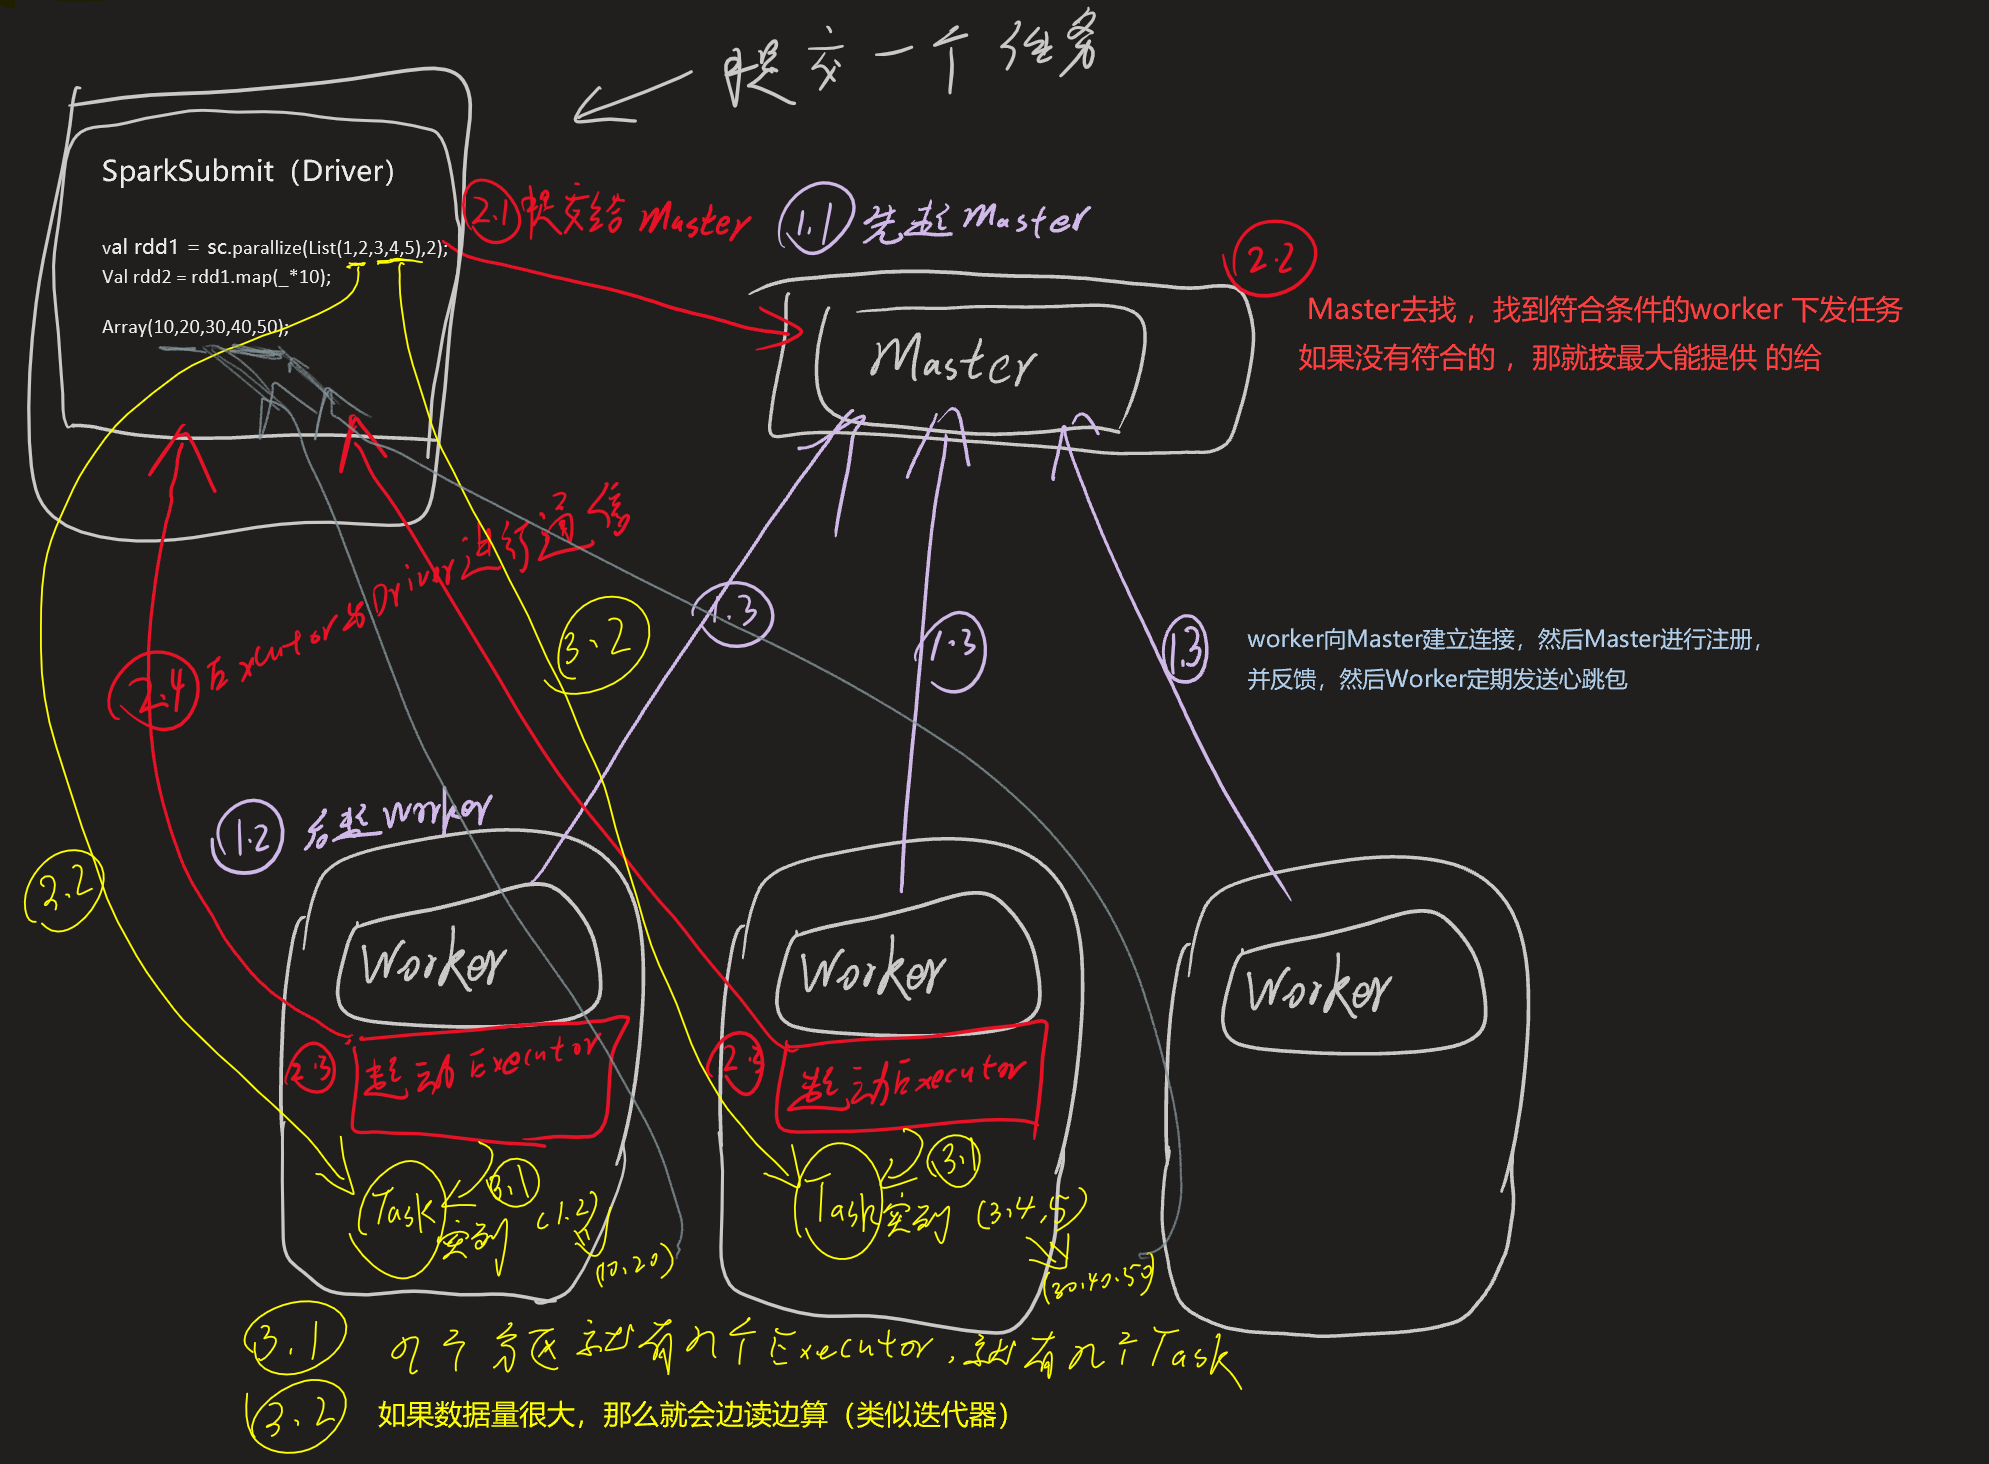 提交一个任务
SparkSubmit（Driver）
val rdd1 = sc.parallize(List(1,2,3,4,5),2);
Val rdd2 = rdd1.map(_*10);
Array(10,20,30,40,50);
2.1 提交给 Master
1.1 先起 Master
2.2
Master去找 ，找到符合条件的worker 下发任务
如果没有符合的 ，那就按最大能提供 的给
Master
2.4 Executor与Driver进行通信
3.2
1.3
1.3
1.3
worker向Master建立连接，然后Master进行注册，
并反馈，然后Worker定期发送心跳包
1.2 后起 Worker
3.2
Worker
Worker
Worker
2.3 起动 Executor
2.3 起动 Executor
Task 实列 3.1 (1.2)
(10.20)
Task 实列 3.1 (3.4,5)
(30.40.50)
3.1 几个分区就有几个Executor,就有几个Task
3.2 如果数据量很大，那么就会边读边算（类似迭代器）